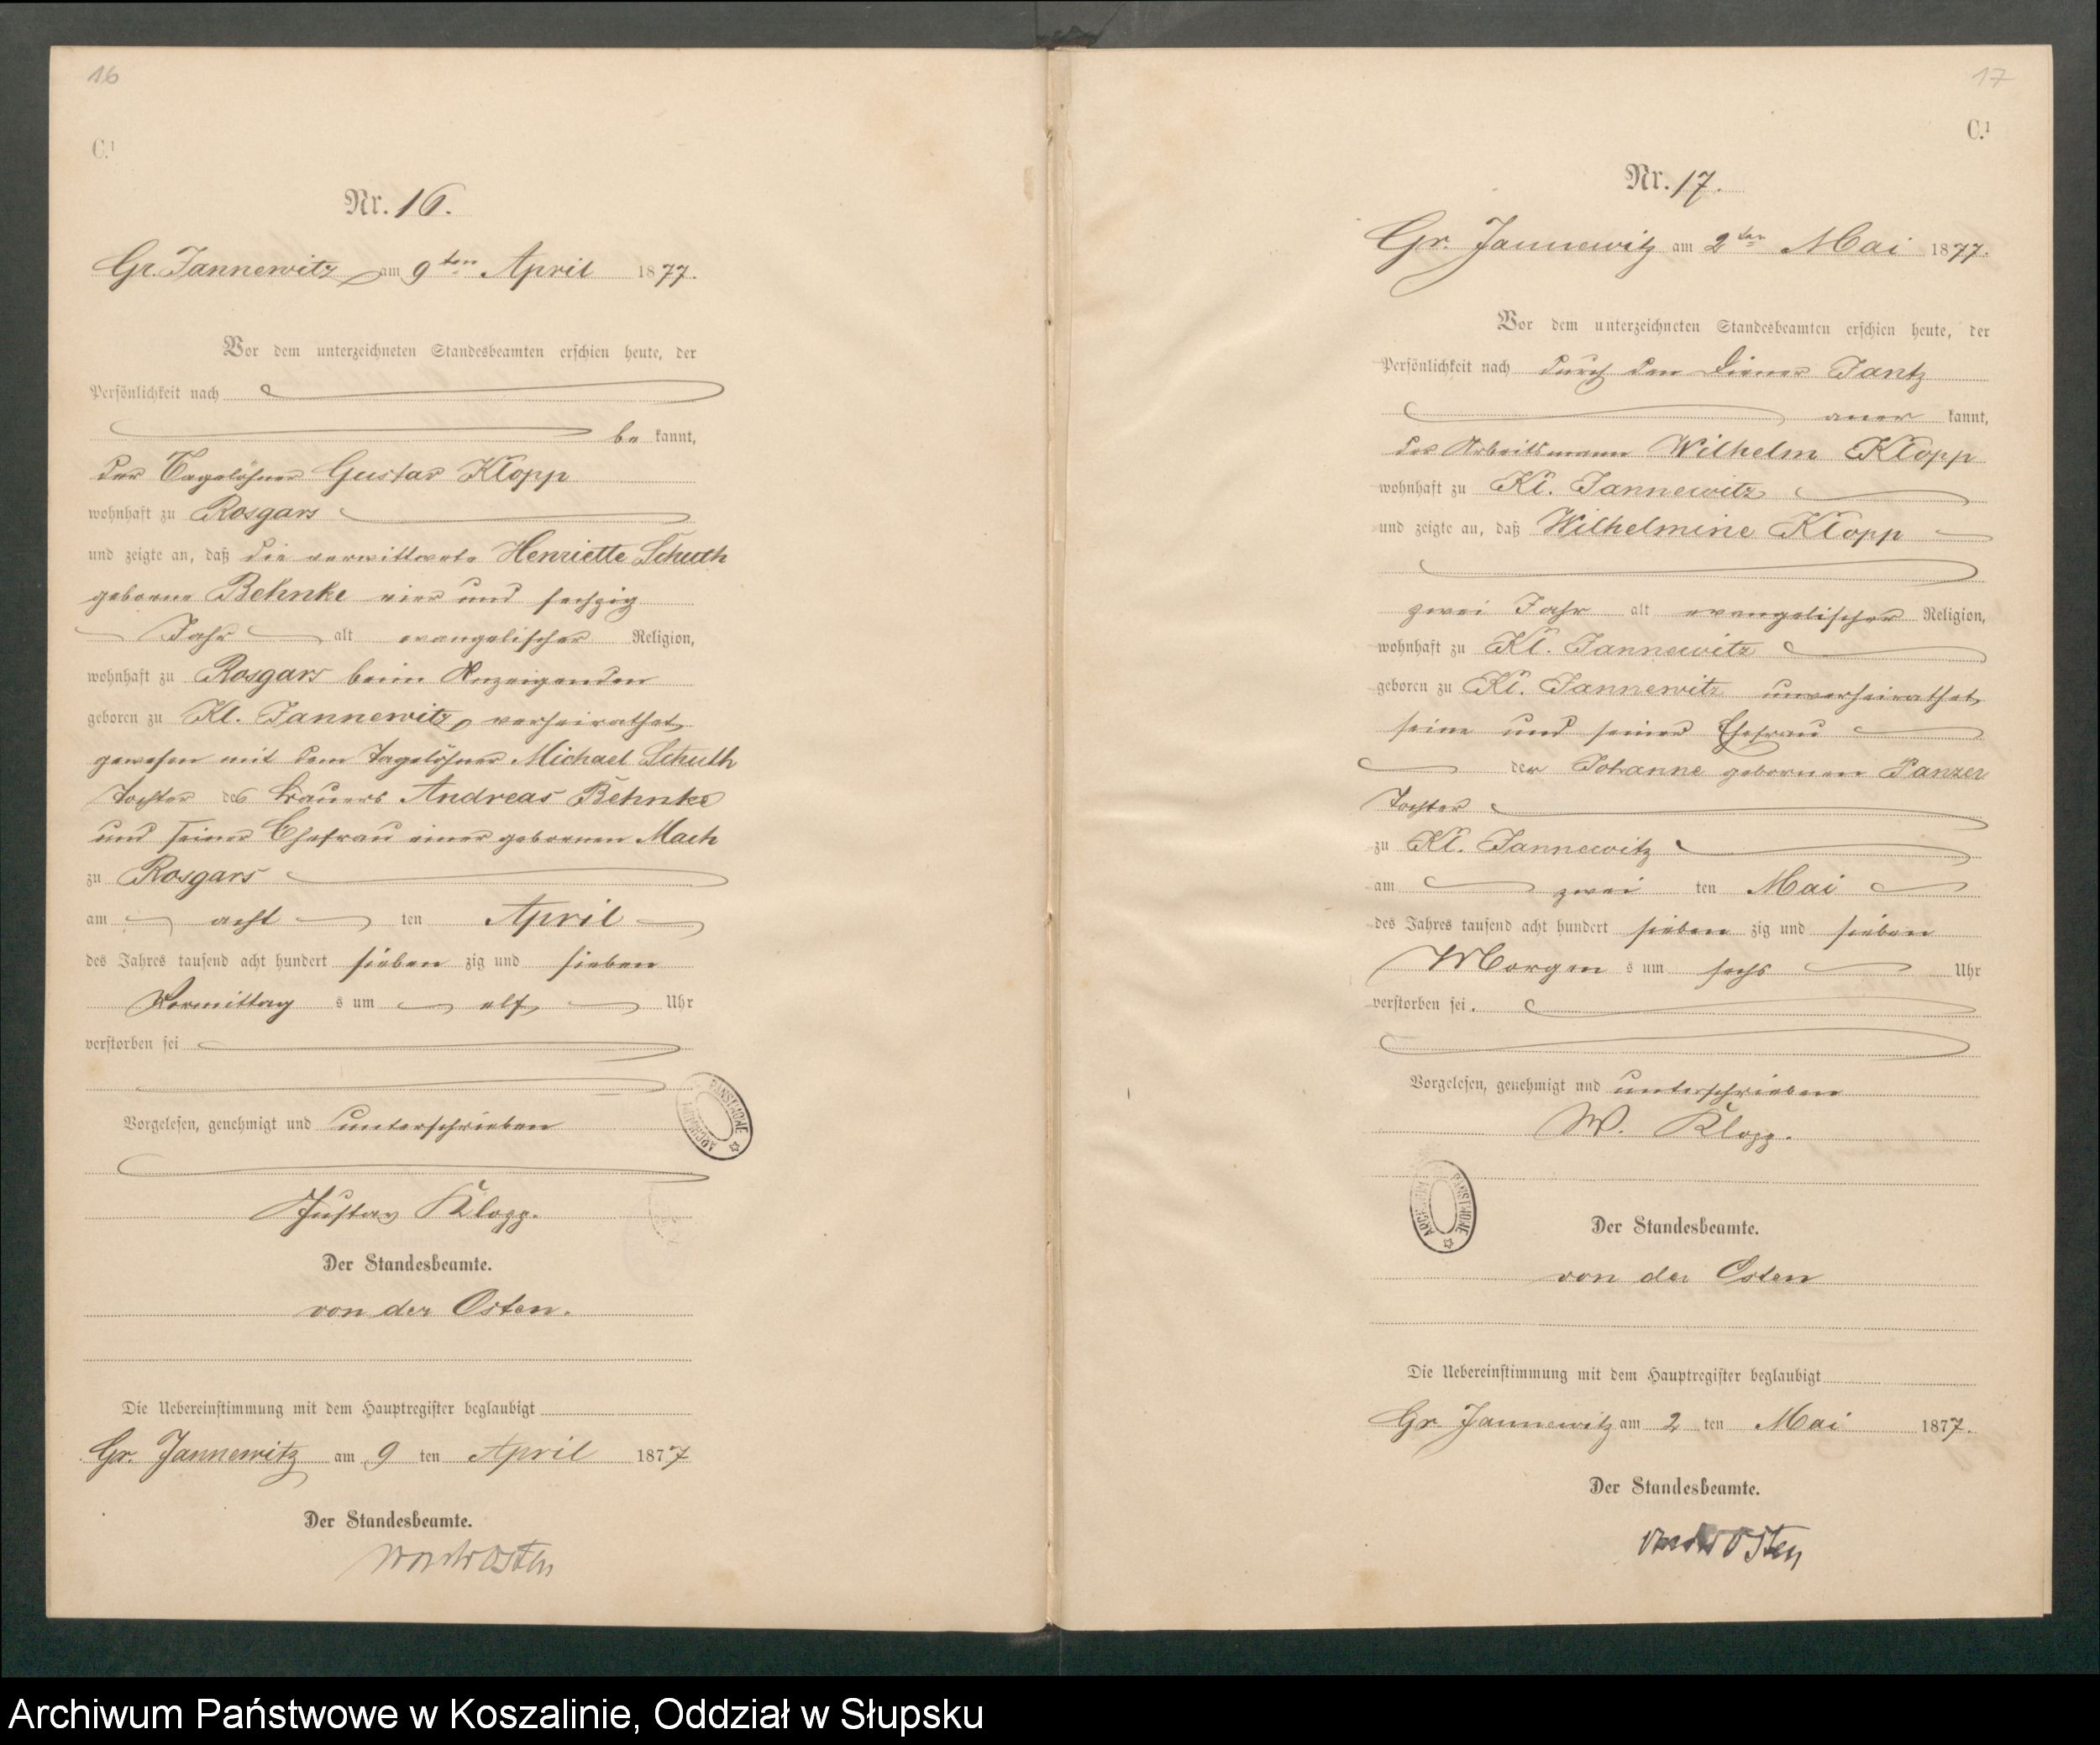 16
C.1
Nr. 16.
Gr. Jannewitz am 9ten April 1877.
Vor dem unterzeichneten Standesbeamten erschien heute, der
Persönlichkeit nach
be kannt,
der Tagelöhner Gustav Klopp
wohnhaft zu Rosgars
und zeigte an, daß die verwittwete Henriette Schuth
geborene Behnke vier und sechzig
Jahr alt evangelischer Religion,
wohnhaft zu Rosgars beim Anzeigenden
geboren zu Kl. Jannewitz, verheirathet
gewesen mit dem Tagelöhner Michael Schuth
Tochter des Bauers Andreas Behnke
und seiner Ehefrau einer gebornen Mach
zu Rosgars
am acht ten April
des Jahres tausend acht hundert sieben zig und sieben
Vormittag s um elf Uhr
verstorben sei
Vorgelesen, genehmigt und unterschrieben
Gustav Klopp.
Der Standesbeamte.
von der Osten.
Die Uebereinstimmung mit dem Hauptregister beglaubigt
Gr. Jannewitz am 9 ten April 1877
Der Standesbeamte.
von der Osten
ARCHIWUM PAŃSTWOWE
17
C.1
Nr. 17.
Gr. Jannewitz am 2ten Mai 1877.
Vor dem unterzeichneten Standesbeamten erschien heute, der
Persönlichkeit nach durch den Diener Jantz
aner kannt,
der Arbeitsmann Wilhelm Klopp
wohnhaft zu Kl. Jannewitz
und zeigte an, daß Wilhelmine Klopp
zwei Jahr alt evangelischer Religion,
wohnhaft zu Kl. Jannewitz
geboren zu Kl. Jannewitz unverheirathet
seine und seiner Ehefrau
der Johanne gebornen Panzer
Tochter
zu Kl. Jannewitz
am zwei ten Mai
des Jahres tausend acht hundert sieben zig und sieben
Morgen s um sechs Uhr
verstorben sei.
Vorgelesen, genehmigt und unterschrieben
W. Klopp.
ARCHIWUM PAŃSTWOWE
Der Standesbeamte.
von der Osten
Die Uebereinstimmung mit dem Hauptregister beglaubigt
Gr. Jannewitz am 2 ten Mai 1877.
Der Standesbeamte.
von der Osten
Archiwum Państwowe w Koszalinie, Oddział w Słupsku